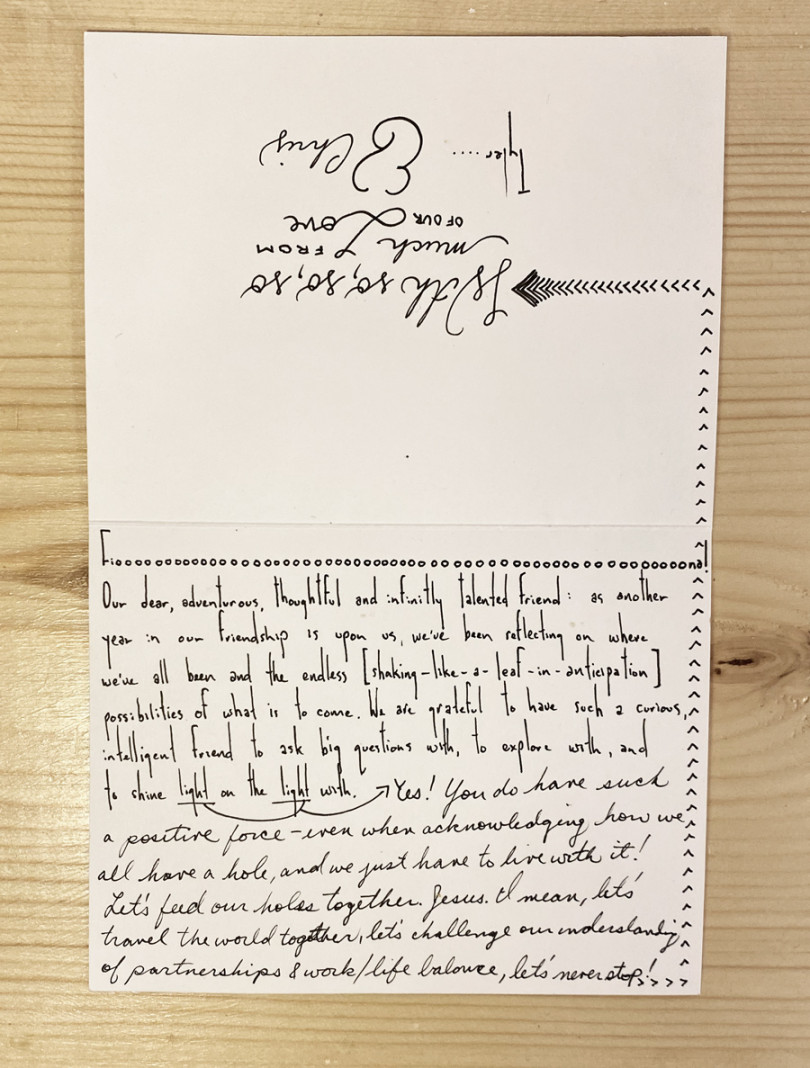 Fioooooooooooooooooooooooooooooooooooooooooooooooona!
Our dear, adventurous, thoughtful and infinitly talented friend: as another
year in our friendship is upon us, we've been reflecting on where
we've all been and the endless [shaking-like-a-leaf-in-anticipation]
possibilities of what is to come. We are grateful to have such a curious,
intelligent friend to ask big questions with, to explore with, and
to shine light on the light with. → Yes! You do have such
a positive force - even when acknowledging how we
all have a hole, and we just have to live with it!
Let's feed our holes together. Jesus. I mean, let's
travel the world together, let's challenge our understanding
of partnerships & work/life balance, let's never stop!
With so, so, so, so
much FROM
OF OUR Love
Tyler.... & Chris